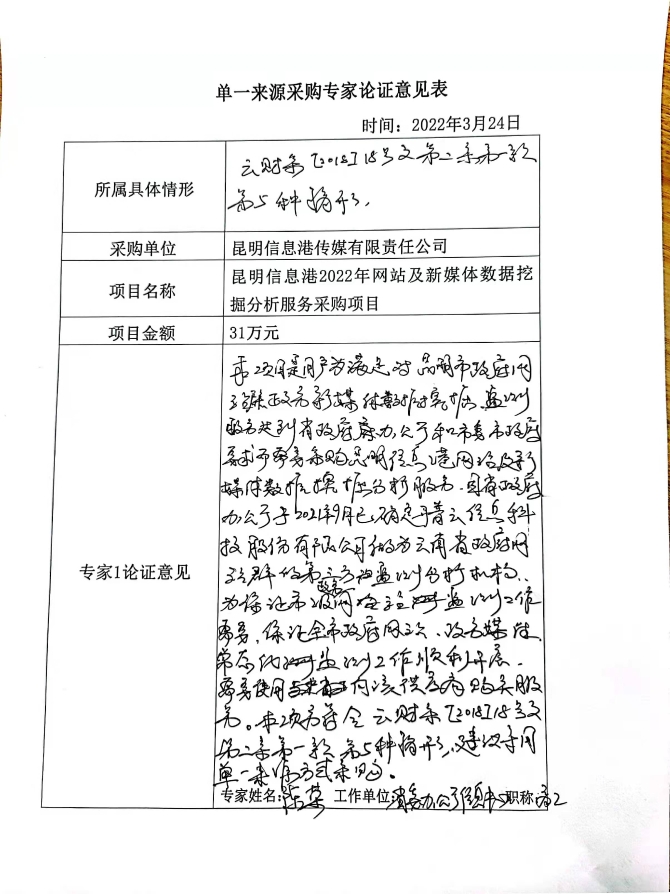 单一来源采购专家论证意见表
时间：2022年3月24日
所属具体情形
云财采[2018]18号文第二条第一款
第5种情形。
采购单位
昆明信息港传媒有限责任公司
项目名称
昆明信息港2022年网站及新媒体数据挖
掘分析服务采购项目
项目金额
31万元
专家1论证意见
本项目是用户为满足对昆明市政府网
政务新媒体数据挖掘、监测
服务达到省政府办公厅和市委市政府
要求而要采购昆明信息港网站及新
媒体数据挖掘分析服务。因省政府
办公厅于2021年9月已确定
云信息科
技股份有限公司作为云南省政府网
站群的第三方监测分析机构,
为保证市级政务网站监测工作
需要,保证全市政府网站、政务媒体
监测工作顺利开展.
需要使用向该供应商购买服
务。本项目符合云财采[2018]18号文
第二条第一款第5种情形,建议采用
单一来源方式采购。
专家姓名:
工作单位:
职称: